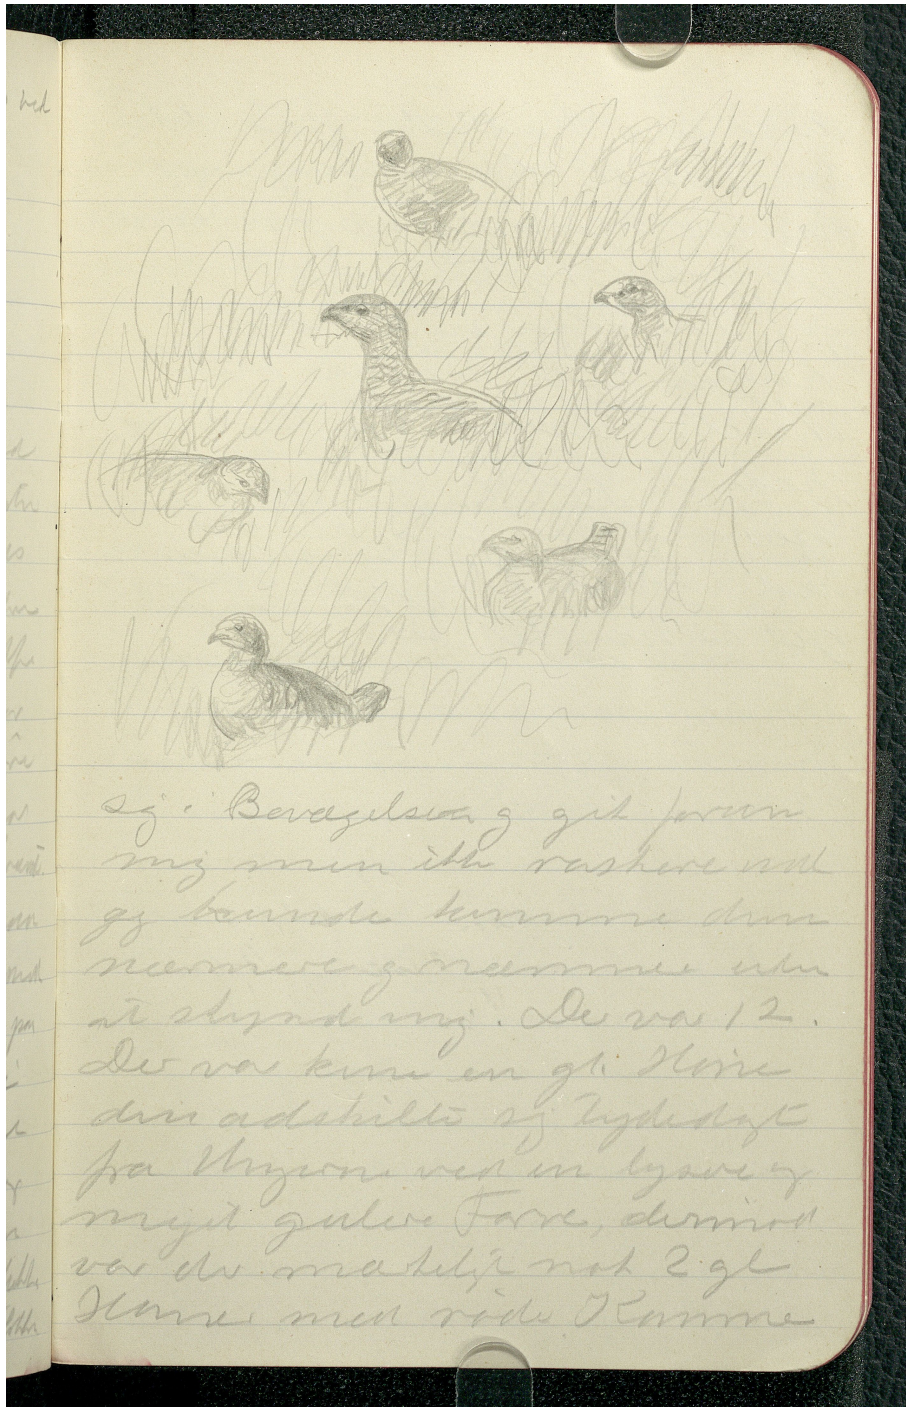 sig i Bevægelse og gik foran
mig men ikke raskere end
jeg kunde komme dem
nærmere og nærmere uden
at skynd mig. Der var 12.
Der var kun en gl. Høne
den adskilte sig tydeligt
fra Ungerne ved en lysere og
meget gulere Farve, derimod
var der mærkeligt nok 2 gl
Hanner med røde Kamme